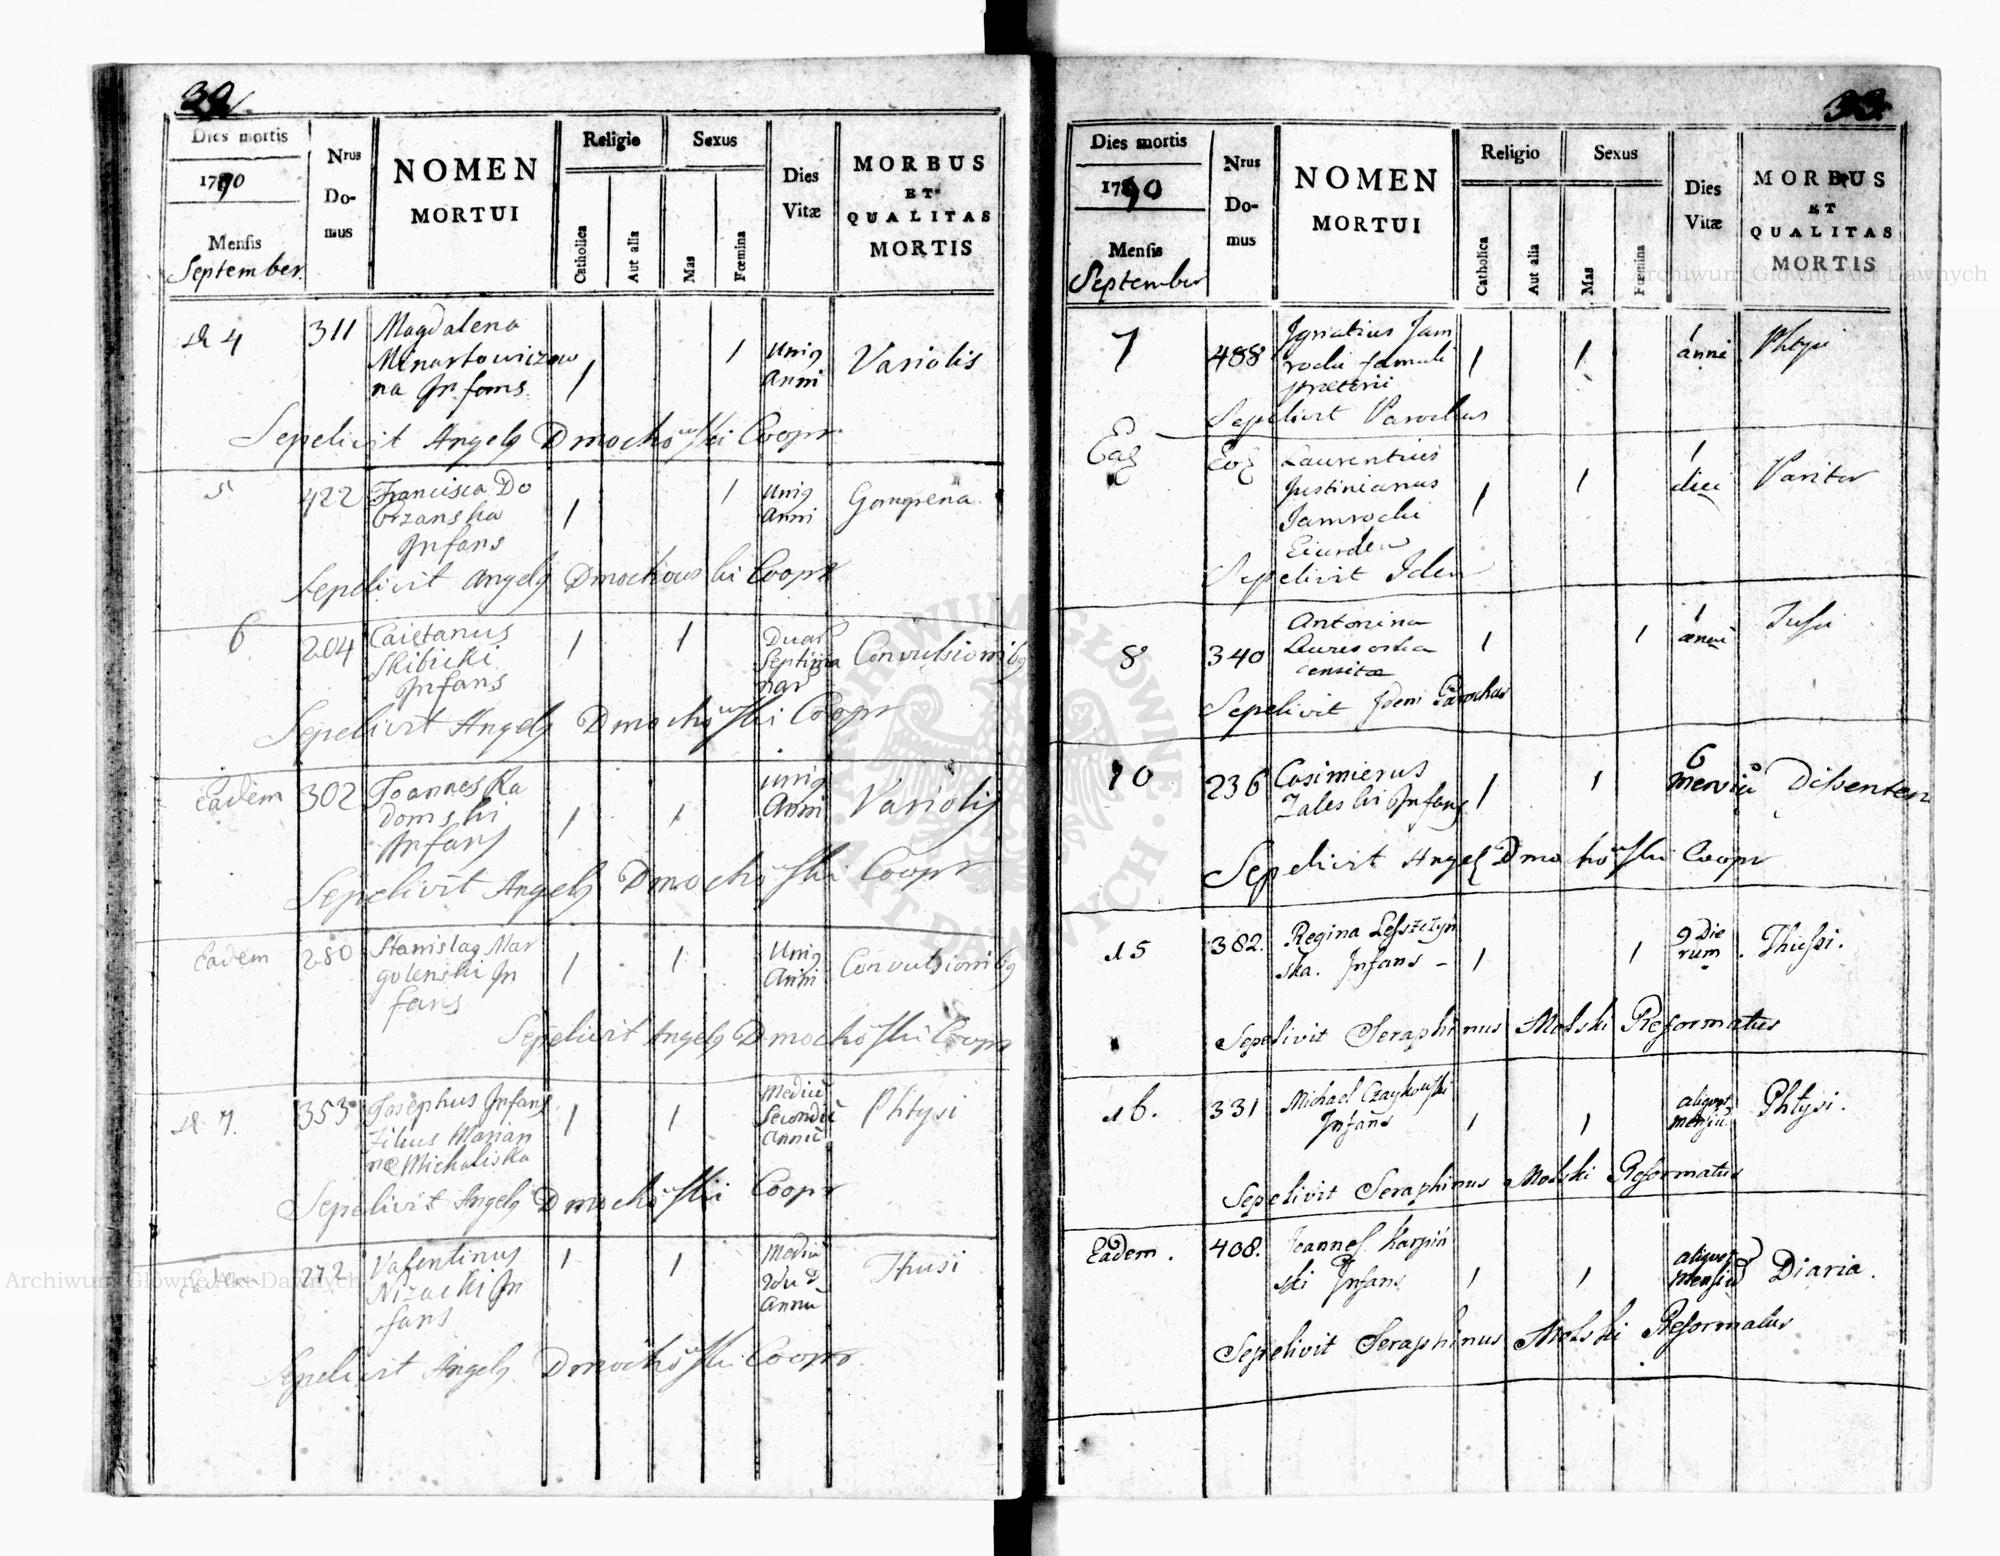 32
Dies mortis
1790
Mensis
September
Nrus
Do-
mus
NOMEN
MORTUI
Religio
Catholica
Aut alia
Sexus
Mas
Fœmina
Dies
Vitæ
MORBUS
ET
QUALITAS
MORTIS
4 311 Magdalena
Minartowiczow
na Infans
Unig
Anni
Variolis
Sepelivit Angelg Dmochowski Coopr
5 422 Francisca Do
brzanska
Infans
Unig
Anni
Gangrena
Sepelivit Angelg Dmochowski Coopr
6 204 Caietanus
Skibicki
Infans
Duar
Septima
nar
Convulsionibg
Sepelivit Angelg Dmochowski Coopr
Eadem 302 Joannes Ra
domski
Infans
Unig
Anni
Variolis
Sepelivit Angelg Dmochowski Coopr
Eadem 280 Stanislag Mar
golenski In
fans
Unig
Anni
Convulsionibg
Sepelivit Angelg Dmochowski Coopr
7. 353 Josephus Infans
Filius Marian
næ Michaliska
Mediū
Secundū
Annū
Phtysi
Sepelivit Angelg Dmochowski Coopr
Eadem 272 Valentinus
Nizacki In
fans
Mediū
Annū
Thusi
Sepelivit Angelg Dmochowski Coopr
33
Dies mortis
1790
Mensis
September
Nrus
Do-
mus
NOMEN
MORTUI
Religio
Catholica
Aut alia
Sexus
Mas
Fœmina
Dies
Vitæ
MORBUS
ET
QUALITAS
MORTIS
7 488 Ignatius Jam
rocki famuli
prætorii
1
anni
Phtysi
Sepelivit Parochus
Laurentius
Justinianus
Jamrocki
Eiusdem
1
diei
Pariter
Sepelivit Idem
8 340 Antonina
1
anni
Tussi
Sepelivit Idem Parochus
10 236 Casimierus
Zaleski Infans
6
mensiū
Dissenteri
Sepelivit Angelg Dmochowski Coopr
15 382. Regina Leszczyn
ska. Infans -
9 Die
rum
Thussi.
Sepelivit Seraphinus Molski Reformatus
16. 331 Michael Czaykowski
Infans
aliquot
mensiū
Phtysi.
Sepelivit Seraphinus Molski Reformatus
Eadem. 408. Joannes Karpiń
ski Infans
aliquot
mensiū
Diaria.
Sepelivit Seraphinus Molski Reformatus
Archiwum Główne Akt Dawnych
Archiwum Główne Akt Dawnych
ARCHIWUM GŁÓWNE · AKT DAWNYCH ·